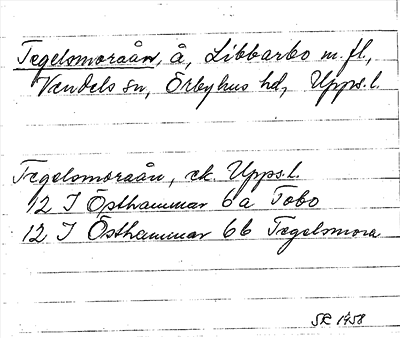 Tegelsmoraån, å, Libbarbo m.fl.,
Vendels sn, Örbyhus hd, Upps.l.
Tegelsmoraån, ek. Upps.l.
12 I Östhammar 6a Tobo
12 I Östhammar 6b Tegelsmora
SR 1958